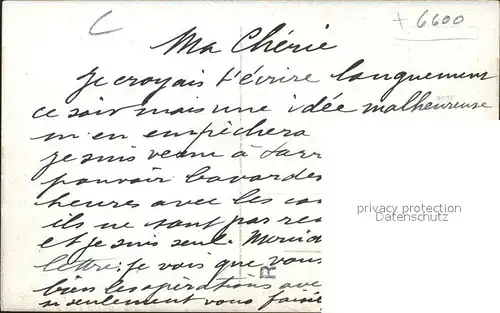 C
+ 6600
Ma Chérie
Je croyais t'écrire longuement
ce soir mais une idée malheureuse
m'en empêchera
je suis venue à Sarr
pouvoir bavarder
heures avec les ca
ils ne sont pas re
et je suis seule. Merci d
lettre: je vois que vous
bien les opérations ave
si seulement vous faisie
R
privacy protection
Datenschutz